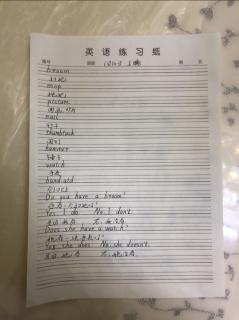 英语练习纸
编号 班级 姓名
broom
扫把
map
地图
picture
图画，照片
nail
钉子
thumbtack
图钉
hammer
锤子
watch
手表
band-aid
创口贴
Do you have a broom?
Yes, I do No, I don't
是的 我有 不，我没有
Does she have a watch?
Yes, she does. No, she doesn't.
是的，她有 不，她没有